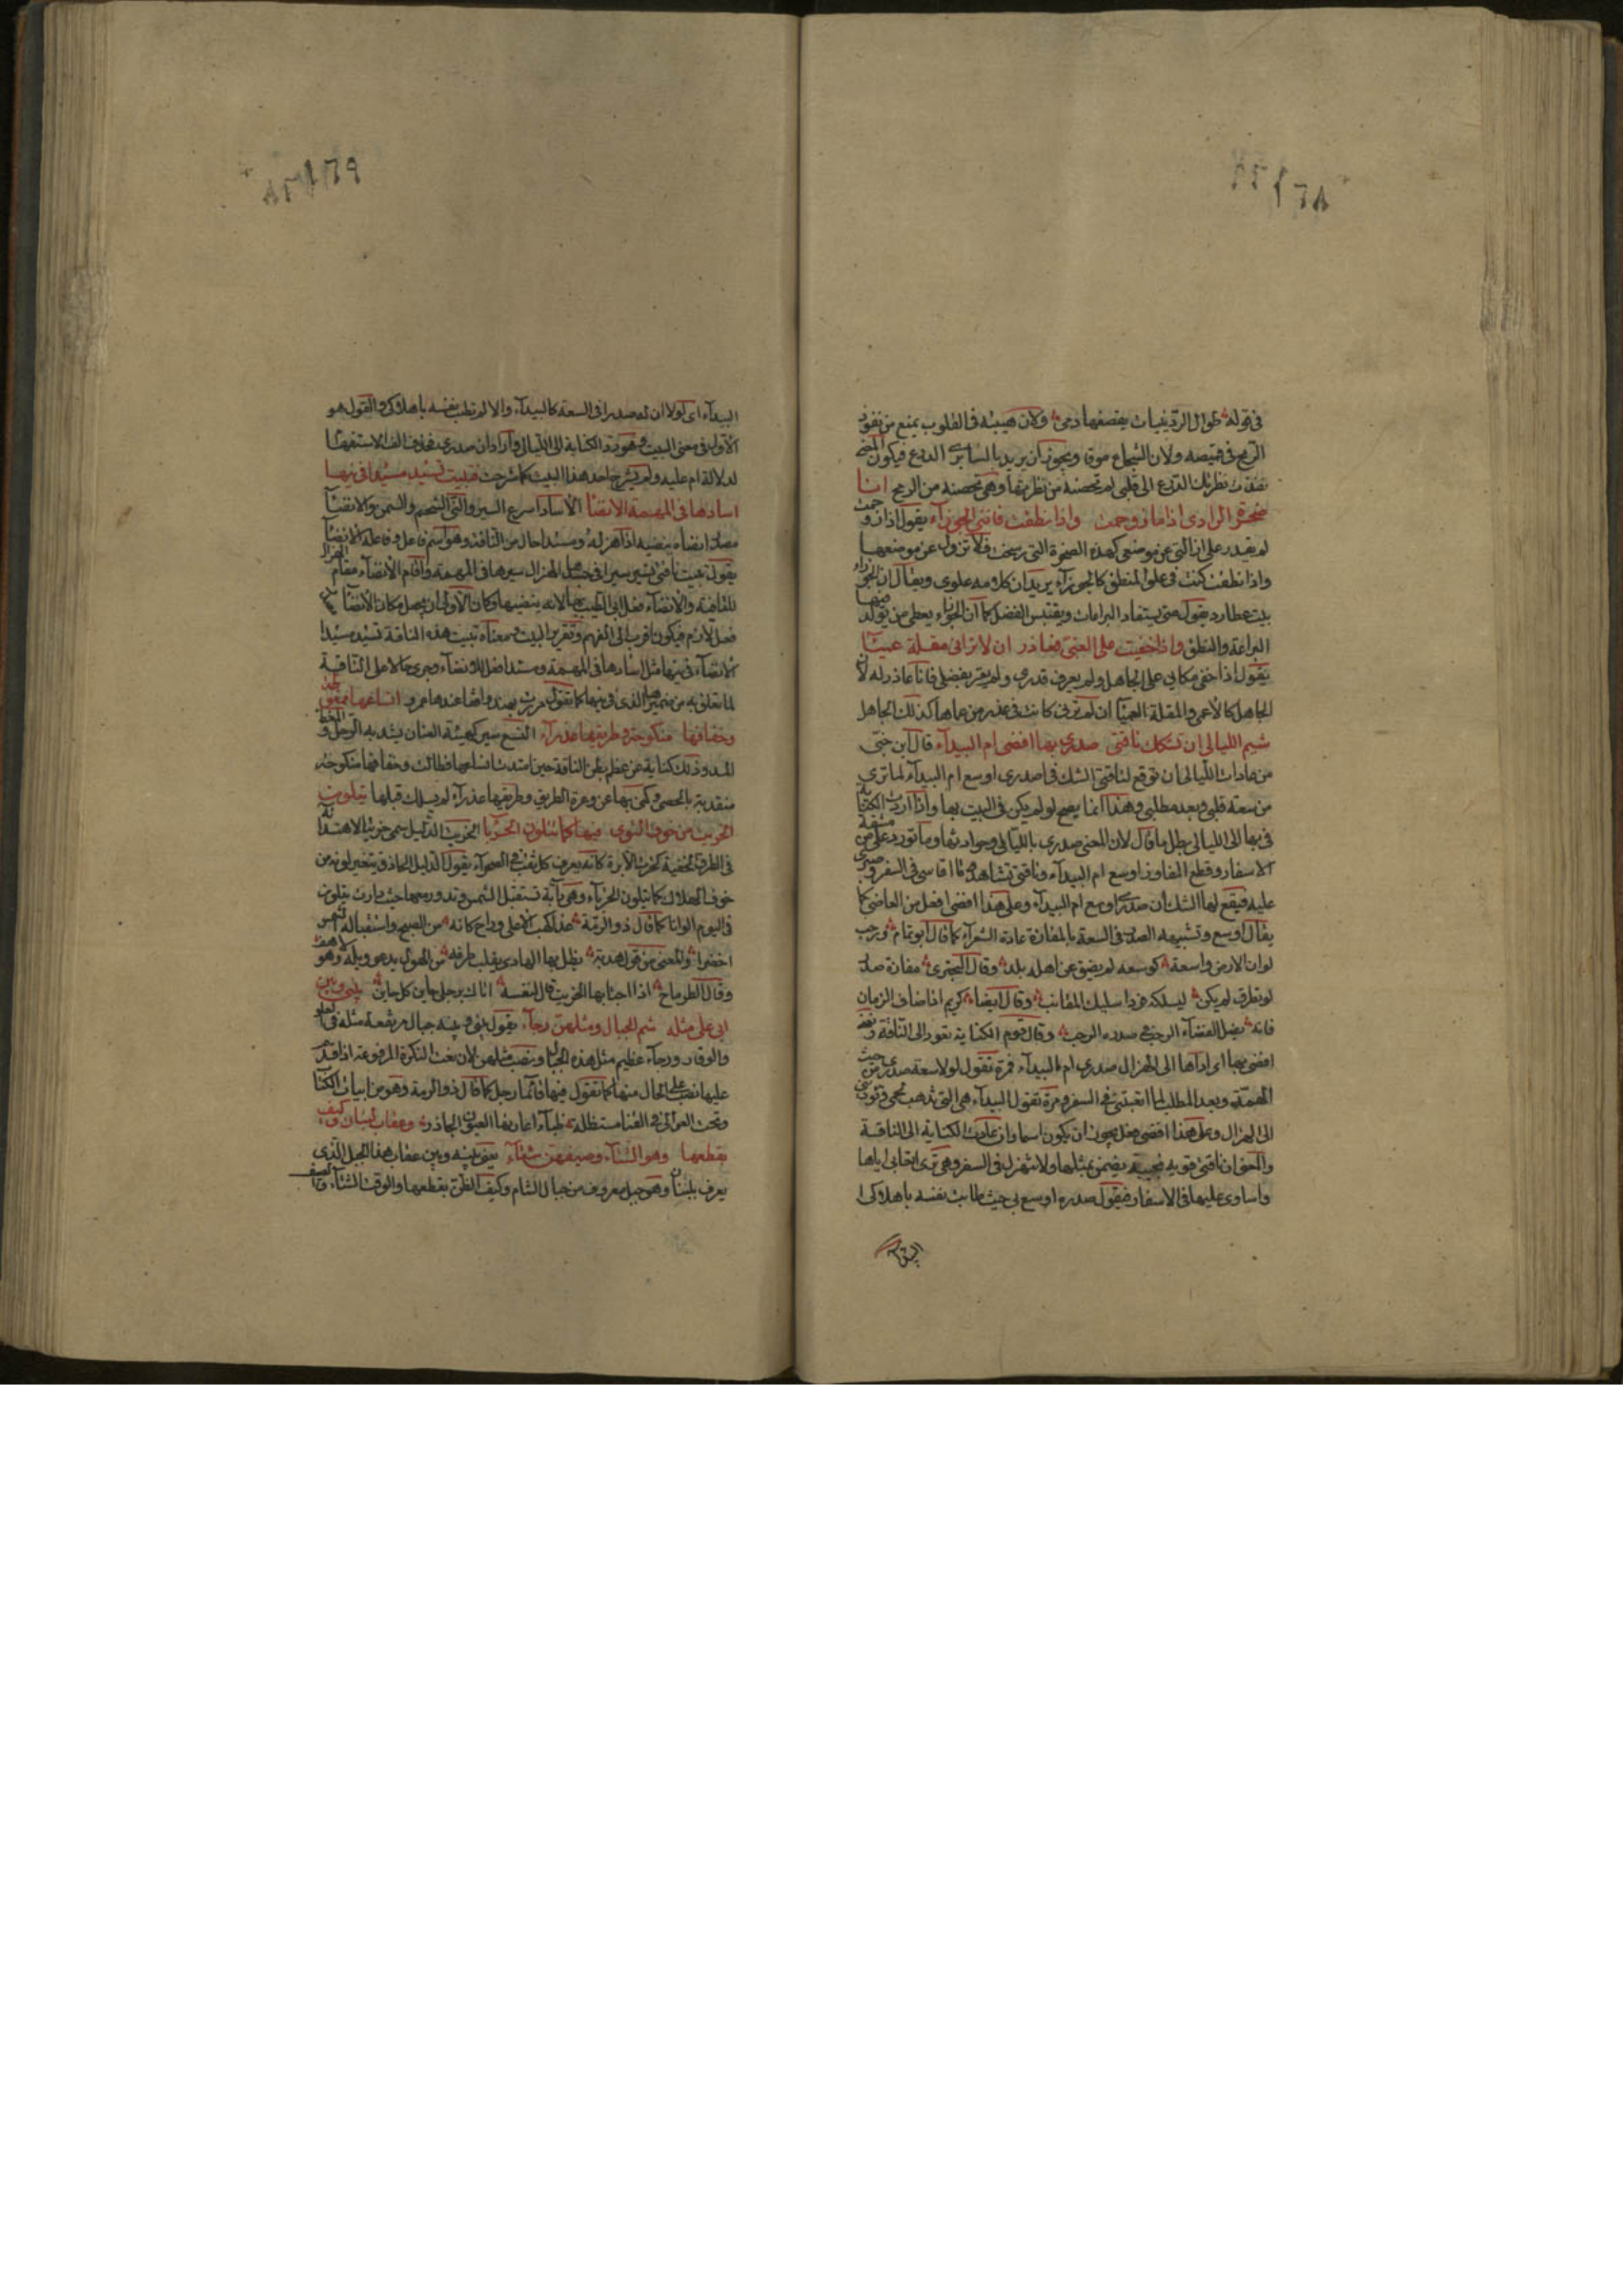 ١٦٨
في قوله طوال الردينيات يقصفها دمى ولان هيبته في القلوب يمنع من نفوذ
الرمح في قميصه ولان الشجاع موقى ويجوز ان يريد بالسابري الدرع فيكون المعنى
نفذت نظرتك الدرع الى قلبى لم تحصنه من نظرتها وهي تحصنه من الرمح انا
صخرة الوادي اذا ما زوحمت واذا نطقت فانني الجوزآء يقول اذا زوحمت
لم يقدر على ازالتي عن موضعي كهذه الصخرة التي رسخت فلا تزول عن موضعها
واذا نطقت كنت في علو المنطق كالجوزآء يريد ان كلامه علوى ويقال ان الجوزاء
بيت عطارد يقول منى يستفاد البراعات ويقتبس الفضل كما ان الجوزاء يعطى من تولد فيها
البراعة والنطق واذا خفيت على الغبي فعاذر ان لا تراني مقلة عميآ
يقول اذا خفي مكاني على الجاهل ولم يعرف قدري ولم يقر بفضلي فانا عاذر له لان
الجاهل كالاعمى والمقلة العميآ ان لم ترني كانت في عذر من عماها كذلك الجاهل
شيم الليالي ان تشكك ناقتي صدري بها افضى ام البيدآء قال ابن جني
من عادات الليالي ان توقع لناقتي الشك في اصدري اوسع ام البيدآء لما ترى
من سعة قلبي وبعد مطلبي وهذا انما يصح لو لم يكن في البيت بها واذا رددت الكناية
في بها الى الليالي بطل ما قال لان المعنى صدري بالليالي وحوادثها وما تورد علي من مشقة
الاسفار وقطع المفاوز اوسع ام البيدآء وناقتي تشاهد ما اقاسي في السفر وصبري
عليه فيقع لها الشك ان صدري اوسع ام البيدآء وعلى هذا افضى افعل من الفاضي كما
يقال اوسع وتشبيه الصدر في السعة بالمفازة عادة الشعرآء كما قال ابو تمام ورحب
لو ان الارض واسعة كوسعه لم يضق عن اهله بلد وقال البحتري مفازة صدر
لو تطرق لم يكن ليسلكه فردا سليك المقانب وقال ايضا كريم اذا ضاق الزمان
فانه يضل الفضآء الرحب في صدره الرحب وقال قوم الكناية تعود الى الناقة ومعنى
افضى بها اى اداها الى الهزال صدري ام البيدآء فمرة تقول لولا سعة صدري من حيث
الهمة وبعد المطلب لما اتعبتني في السفر ومرة تقول البيدآء هي التي تذهب لحمي وتؤدي
الى الهزال وعلى هذا افضى فعل يجوز ان يكون اسما وان عادت الكناية الى الناقة
والمعنى ان ناقتي قوية نجيبة يضمن بمثلها ولا تهزل في السفر وهي ترى اتعابي اياها
واساوى عليها في الاسفار فيقول صدره اوسع بي حيث طابت نفسه باهلاكي
البيدآء
١٦٩
البيدآء اى لولا ان له صدرا في السعة كالبيدآء والا لم تطب نفسه باهلاكي والقول هو
الاول في معنى البيت وهو رد الكناية الى الليالي واراد ان صدري فحذف الف الاستفهام
لدلالة ام عليه ولم يشرح احد هذا البيت كما شرحت فتبيت تسئد مسئدا في نيها
اسآدها في المهمه الانضآ الاسآد اسراع السير والنى الشحم والسمن والانضآء
مصدر انضاه ينضيه اذا هزله ومسئدا حال من الناقة وهو اسم فاعل وفاعله الانضآ
يقول تبيت ناقتي تسير سيرا في جسدها الهزال سيرها في المهمه واقام الانضآء مقام الهزال
للقافية والانضآء فعل ابي الطيب بها لانه ينضيها وكان الاولى ان يجعل مكان الانضآ
فعل لازم فيكون اقرب الى الفهم وتقدير البيت ومعناه تبيت هذه الناقة تسئد مسئدا
الانضآء في نيها مثل اسآدها في المهمه ومسئدا فعل للانضآء وجرى حالا على الناقة
لما تعلق به من ضمير الذي في نيها كما تقول مررت بهند واقفا عندها عمرو انساعها ممغوطة
وخفافها منكوحة وطريقها عذرآء النسع سير كهيئة العنان يشد به الرحل والمغط
المد وذلك كناية عن عظم بطن الناقة حين امتدت انساعها فطالت وخفافها منكوحة
منقدبة بالحصى وكنى بها عن وعرة الطريق وطريقها عذرآء لم يسلك قبلها يتلون
الخريت من خوف التوى فيها كما يتلون الحربا الخريت الدليل سمى خريتا لاهتدائه
في الطرق الخفية كخرت الابرة كانه يعرف كل ثقب في الصحرآء يقول الدليل الحاذق يتغير لونه من
خوف الهلاك كما يتلون الحربآء وهي دآبة تستقبل الشمس وتدور معها حيث دارت يتلون
في اليوم الوانا كما قال ذو الرمة غدا اكهب الاعلى وراح كانه من الضح واستقباله الشمس
اخضر والمعنى من قول هدبة يظل بها الهادي يقلب طرفه من الهول يدعو ويله وهو لاهف
وقال الطرماح اذا اجتابها الخريت قال لنفسه اتاك برجلي حاين كل حاين بيني وبين
ابي علي مثله شم الجبال ومثلهن رجآء يقول بيني وبينه جبال مرتفعة مثله في العلو
والوقار ورجآء عظيم مثل هذه الجبال ونصب مثلهن لان نعت النكرة المرفوعة اذا قدم
عليها نصب على الحال منها كما تقول فيها قائما رجل كما قال ذو الرمة وهو من ابيات الكتاب
وتحت العوالي في القنا مستظلة ظبآء اعارتها العيون الجاذر وعقاب لبنان وكيف
بقطعها وهو الشتآء وصيفهن شتآء يعني بينه وبين عقاب هذا الجبل الذي
يعرف بلبنان وهو جبل معروف من جبال الشام وكيف الظن بقطعها والوقت الشتآء والصيف